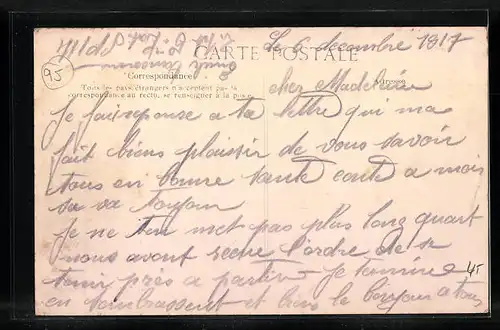 Le 6 decembre 1917
CARTE POSTALE
Correspondance
Adresse
Tous les pays étrangers n'acceptent pas la
correspondance au recto, se renseigner à la poste
95
cher Madeleine
Je fait reponse a ta lettre qui ma
fait biens plaisir de vous savoir
tous en bonne santé a mois
sa va toujour
Je ne ten met pas plus long quart
nous avont recue l'ordre de se
tenir près a partir Je termine
en tembrassent et biens le bonjour a tous
45